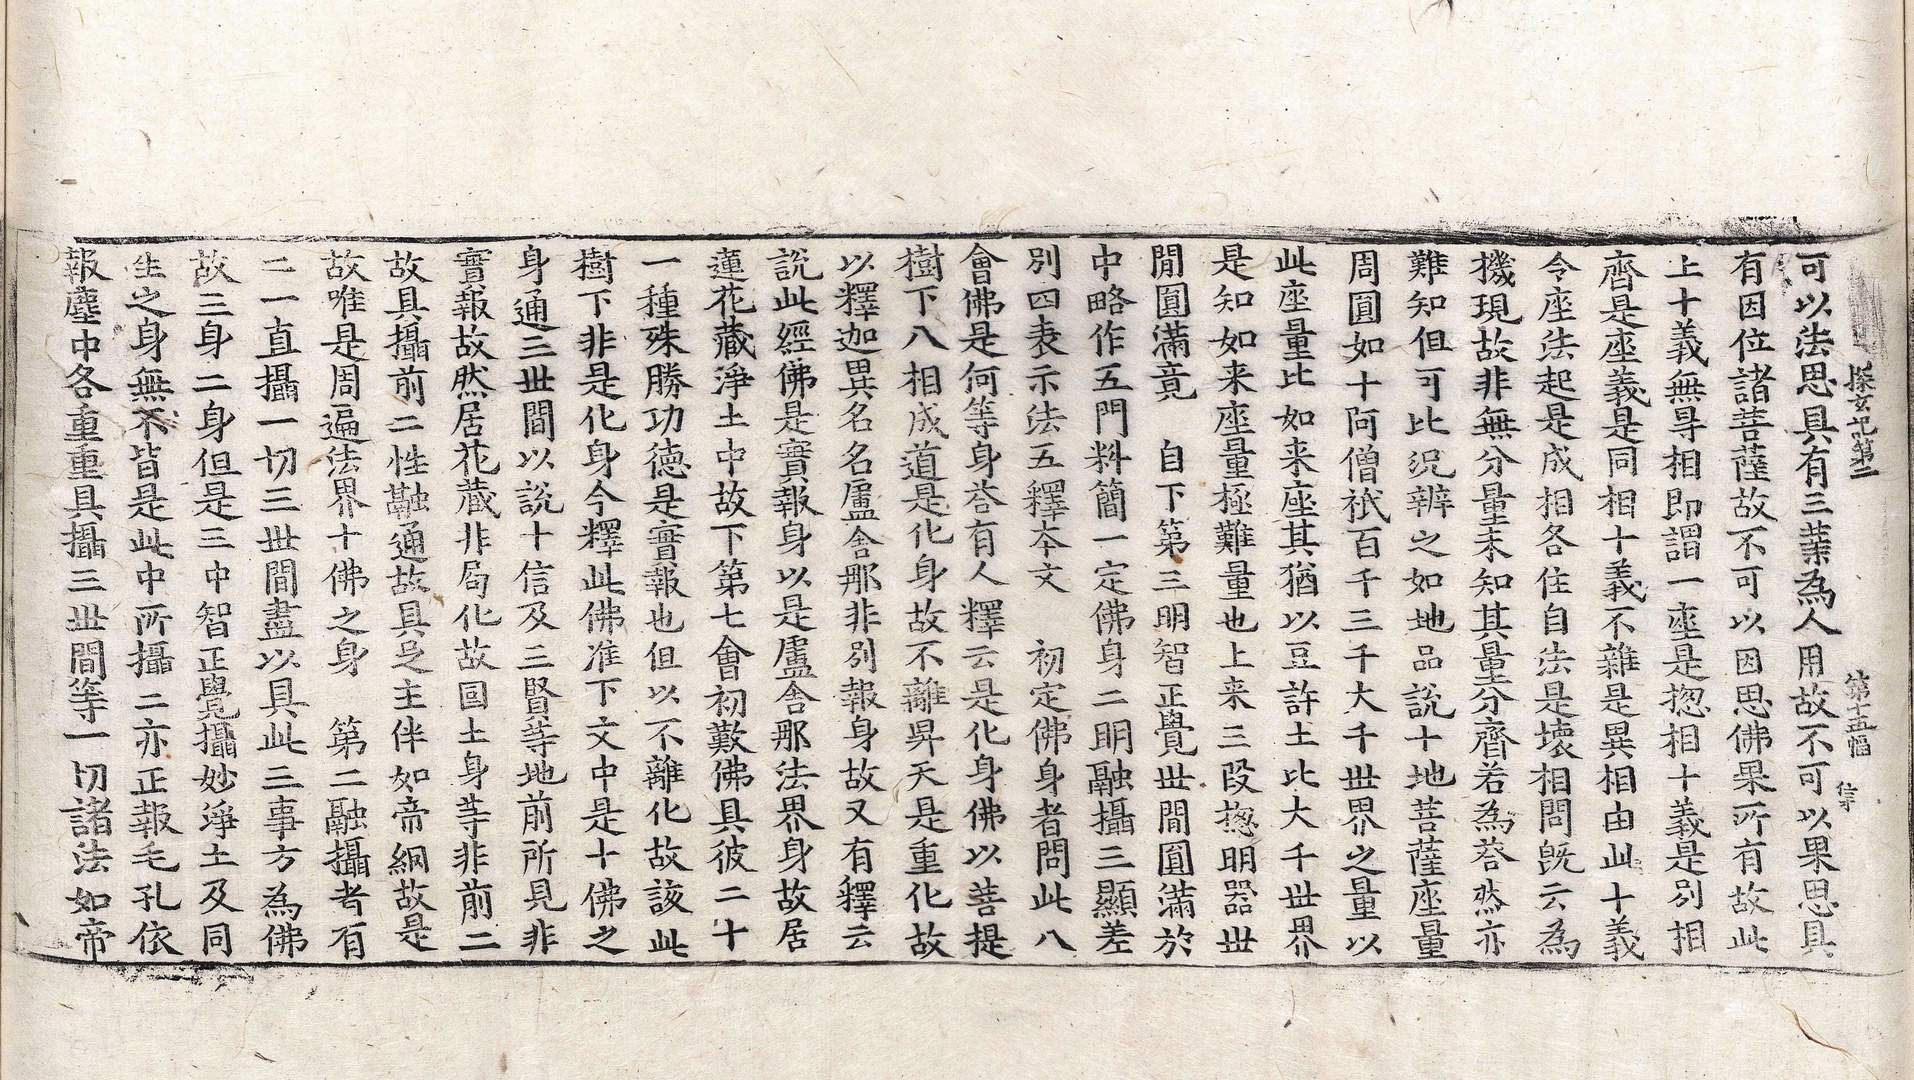 探玄記第二　第十五幅　信
可以法思具有三業為人用故不可以果思具
有因位諸菩薩故不可以因思佛果所有故此
上十義無㝵相即謂一座是揔相十義是別相
齊是座義是同相十義不雜是異相由此十義
令座法起是成相各住自法是壞相問旣云為
機現故非無分量未知其量分齊若為荅然亦
難知但可比況辨之如地品說十地菩薩座量
周圓如十阿僧祇百千三千大千世界之量以
此座量比如来座其猶以豆許土比大千世界
是知如来座量極難量也上来三段揔明器世
閒圓滿竟　自下第三明智正覺世間圓滿於
中略作五門料簡一定佛身二明融攝三顯差
別四表示法五釋本文　初定佛身者問此八
會佛是何等身荅有人釋云是化身佛以菩提
樹下八相成道是化身故不離昇天是重化故
以釋迦異名名盧舍那非別報身故又有釋云
說此經佛是實報身以是盧舍那法界身故居
蓮花藏淨土中故下第七會初歎佛具彼二十
一種殊勝功德是實報也但以不離化故該此
樹下非是化身今釋此佛准下文中是十佛之
身通三世間以說十信及三賢等地前所見非
實報故然居花藏非局化故国土身等非前二
故具攝前二性融通故具足主伴如帝網故是
故唯是周遍法界十佛之身　第二融攝者有
二一直攝一切三世間盡以具此三事方為佛
故三身二身但是三中智正覺攝妙淨土及同
生之身無不皆是此中所攝二亦正報毛孔依
報塵中各重重具攝三世間等一切諸法如帝